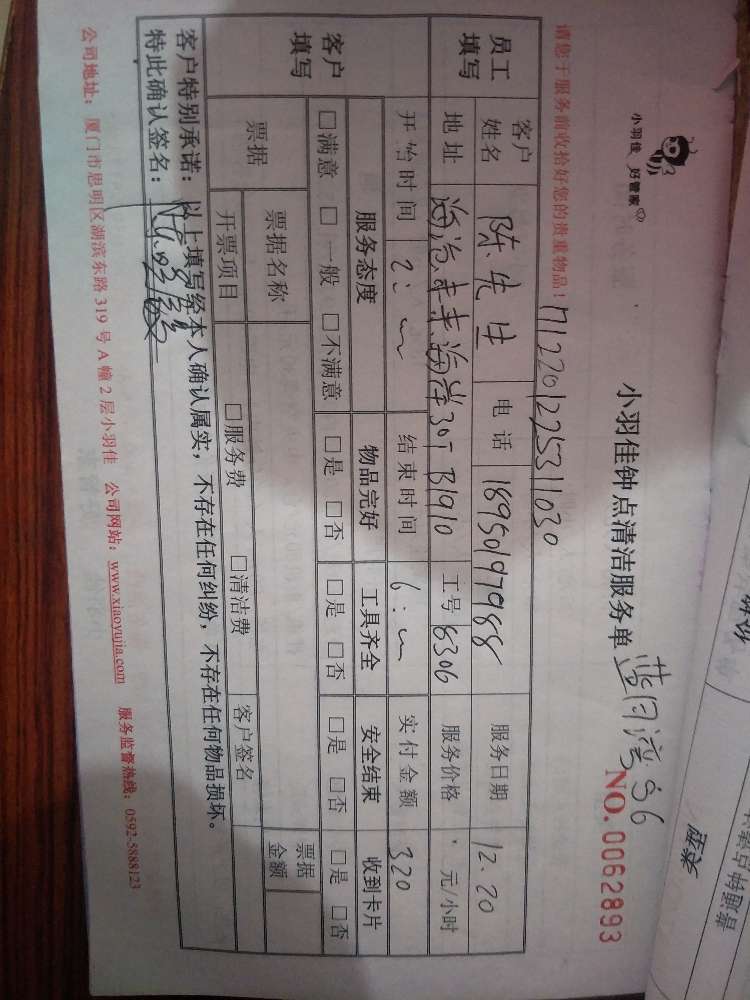 小羽佳 好管家
小羽佳钟点清洁服务单 蓝月湾36
NO. 0062893
请您于服务前收拾好您的贵重物品！171220122531030
员工填写 客户姓名 陈先生 电话 18950197988 服务日期 12.20
地址 海沧未来海岸307 B1910 工号 8306 服务价格 元/小时
客户填写 开始时间 2: 结束时间 6: 实付金额 320
服务态度 物品完好 工具齐全 安全结束 收到卡片
□满意 □一般 □不满意 □是 □否 □是 □否 □是 □否 □是 □否
票据 票据名称 客户签名 票据金额
开票项目 □服务费 □清洁费
客户特别承诺：以上填写经本人确认属实，不存在任何纠纷，不存在任何物品损坏。
特此确认签名：
公司地址：厦门市思明区湖滨东路319号A幢2层小羽佳 公司网站：www.xiaoyujia.com 服务监督热线：0592-5888123